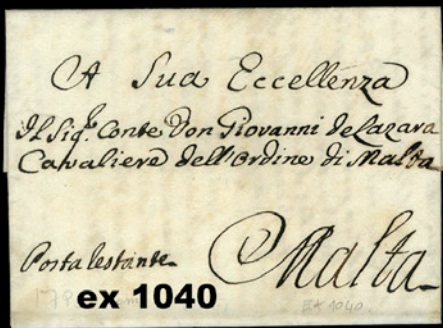 A Sua Eccellenza
Il Sigr. Conte Don Giovanni de Lazara
Cavaliere dell'Ordine di Malta
Posta lestante.
Malta.
ex 1040
Ex 1040